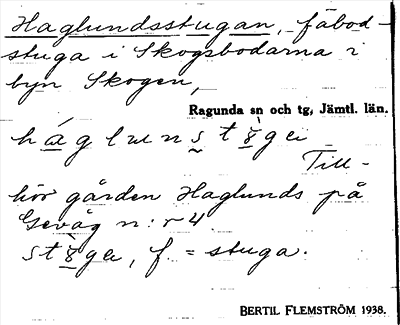 Haglundsstugan, fäbod-
stuga i Skogsbodarna i
byn Skogen,
Ragunda sn och tg, Jämtl. län.
Till-
hör gården Haglunds på
Gevåg n:r 4.
f. = stuga.
BERTIL FLEMSTRÖM 1938.